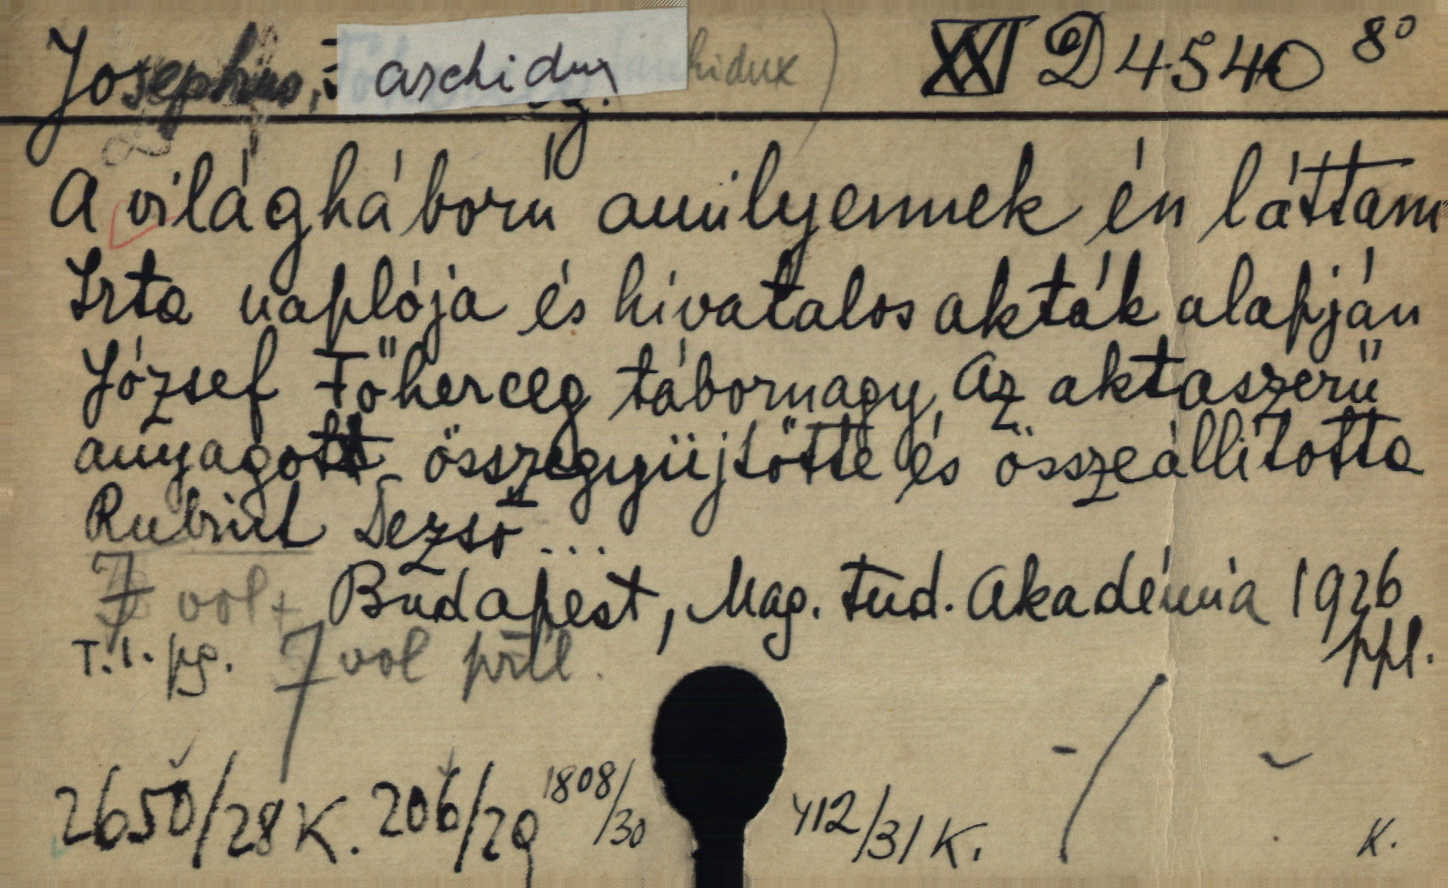 Josephus, archidux XXI D 4540 8°
A világháború amilyennek én láttam
Irta naplója és hivatalos akták alapján
József Főherceg tábornagy. Az aktaszerü
anyagott összegyüjtötte és összeállitotta
Rubint Dezső ...
7 vol + Budapest, Mag. Tud. Akadémia 1926
T. I. pg. 7 vol ppl.
2650/28 K. 206/29 1808/30 412/31 K. K.